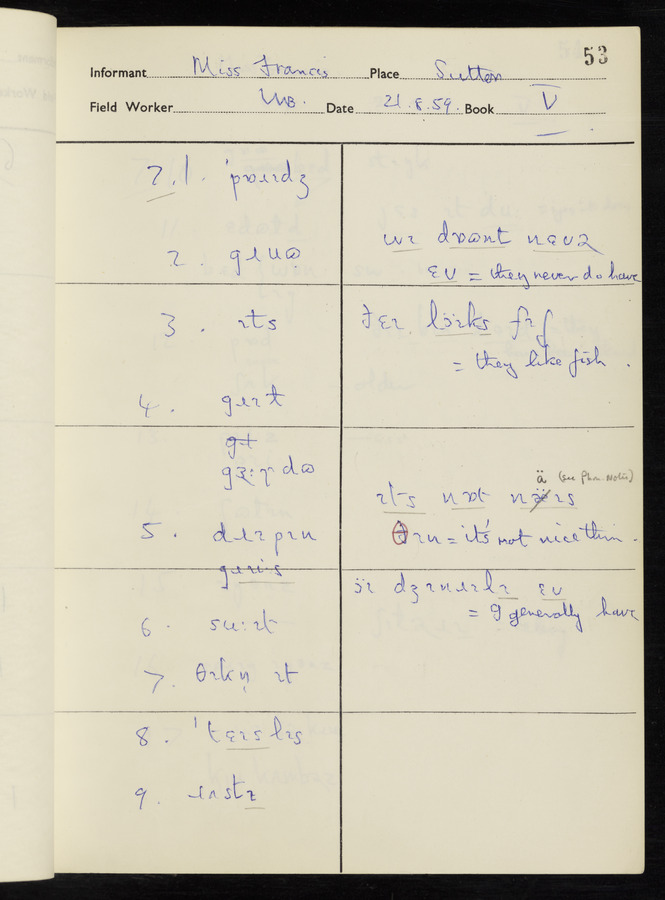 53
Informant Miss Francis Place Sutton
Field Worker Date 21.8.59. Book V
7.1. ˈpɒɹɪdʒ
2 gɹuɷ
wɪ dɒɷnt nɛvə
ɛv = they never do have
3. ɪts
ðɛɪ lɑ̈ɪks fɪʃ
= they like fish.
4. gɹɪt
5. dɹɪpɪn
ä (see Phon. Notes)
ɪts nɒt näɪs
θɪn = it's not nice thin.
ɑ̈ɪ dʒɛnɹɪlɪ ɛv
= I generally have
6. su:ɪt
7. θɪkn̩ ɪt
8. ˈtɛɪslɪs
9.